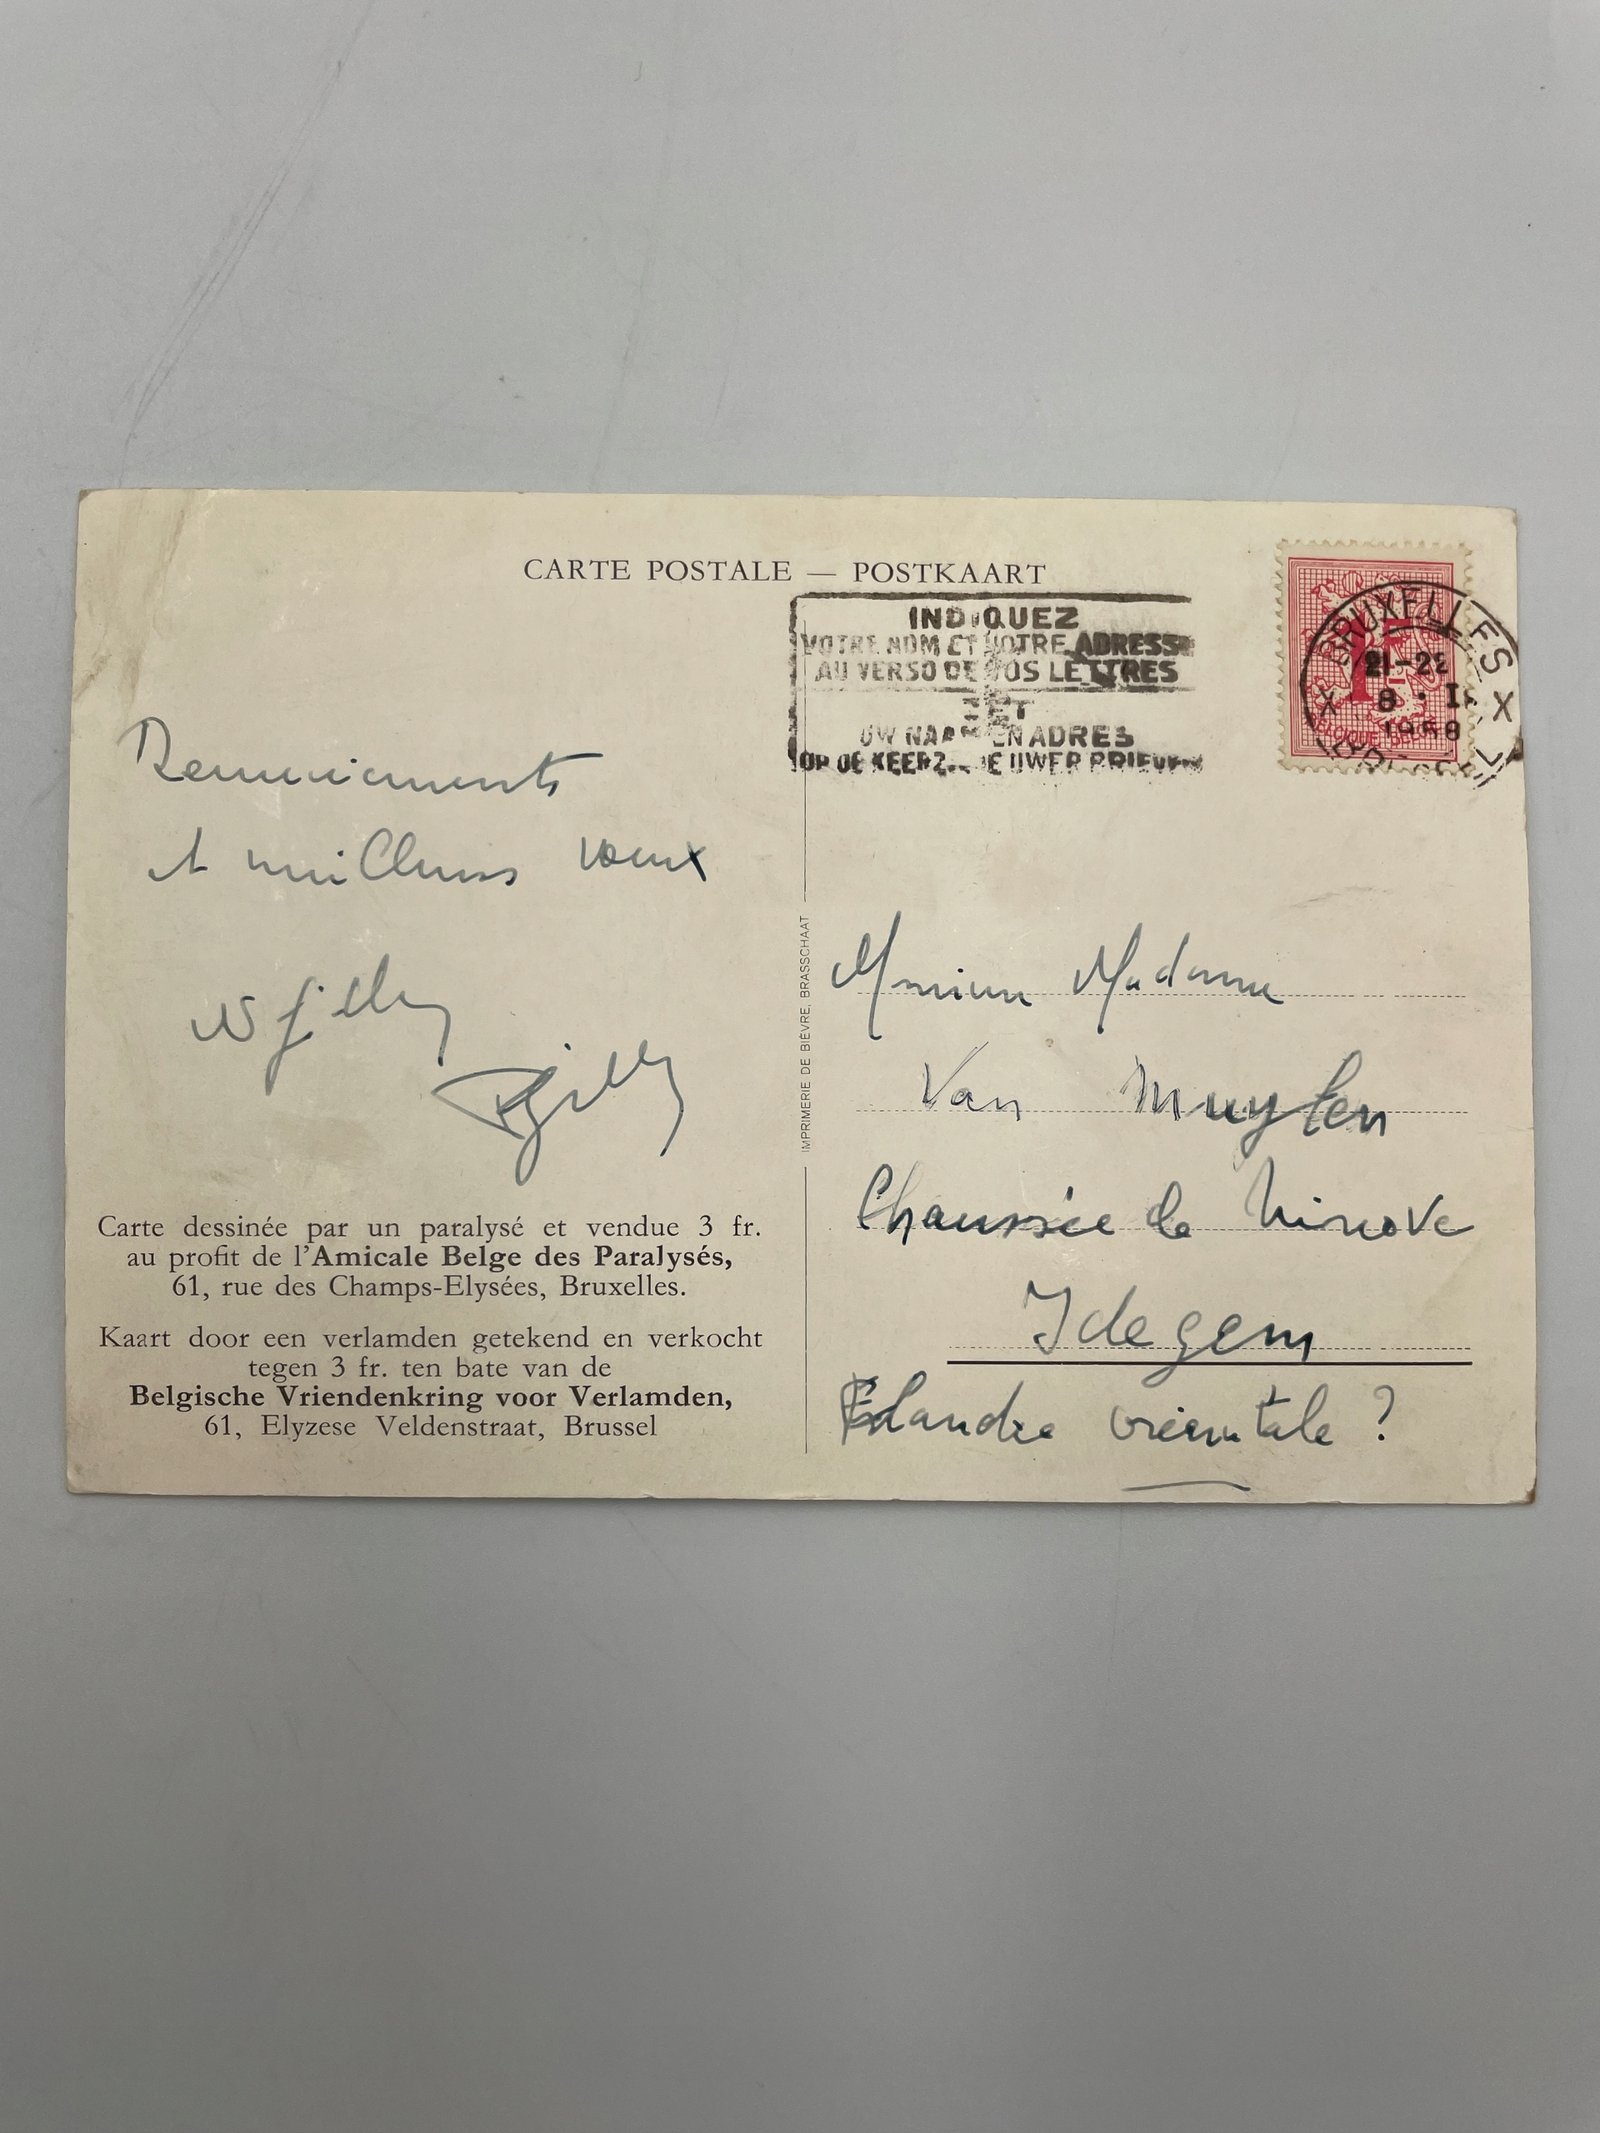 CARTE POSTALE — POSTKAART
INDIQUEZ
VOTRE NOM ET VOTRE ADRESSE
AU VERSO DE VOS LETTRES
ET
UW NAAM EN ADRES
OP DE KEERZIJDE UWER BRIEVEN
BRUXELLES X
21-22
8 · I
1958
BELGIQUE BELGIE
Remerciements
et meilleurs vœux
Gilly
Gilly
IMPRIMERIE DE BIÈVRE, BRASSCHAAT
Carte dessinée par un paralysé et vendue 3 fr.
au profit de l'Amicale Belge des Paralysés,
61, rue des Champs-Elysées, Bruxelles.
Kaart door een verlamden getekend en verkocht
tegen 3 fr. ten bate van de
Belgische Vriendenkring voor Verlamden,
61, Elyzese Veldenstraat, Brussel
Monsieur Madame
Van Muylen
Chaussée de Ninove
Idegem
Flandre orientale ?